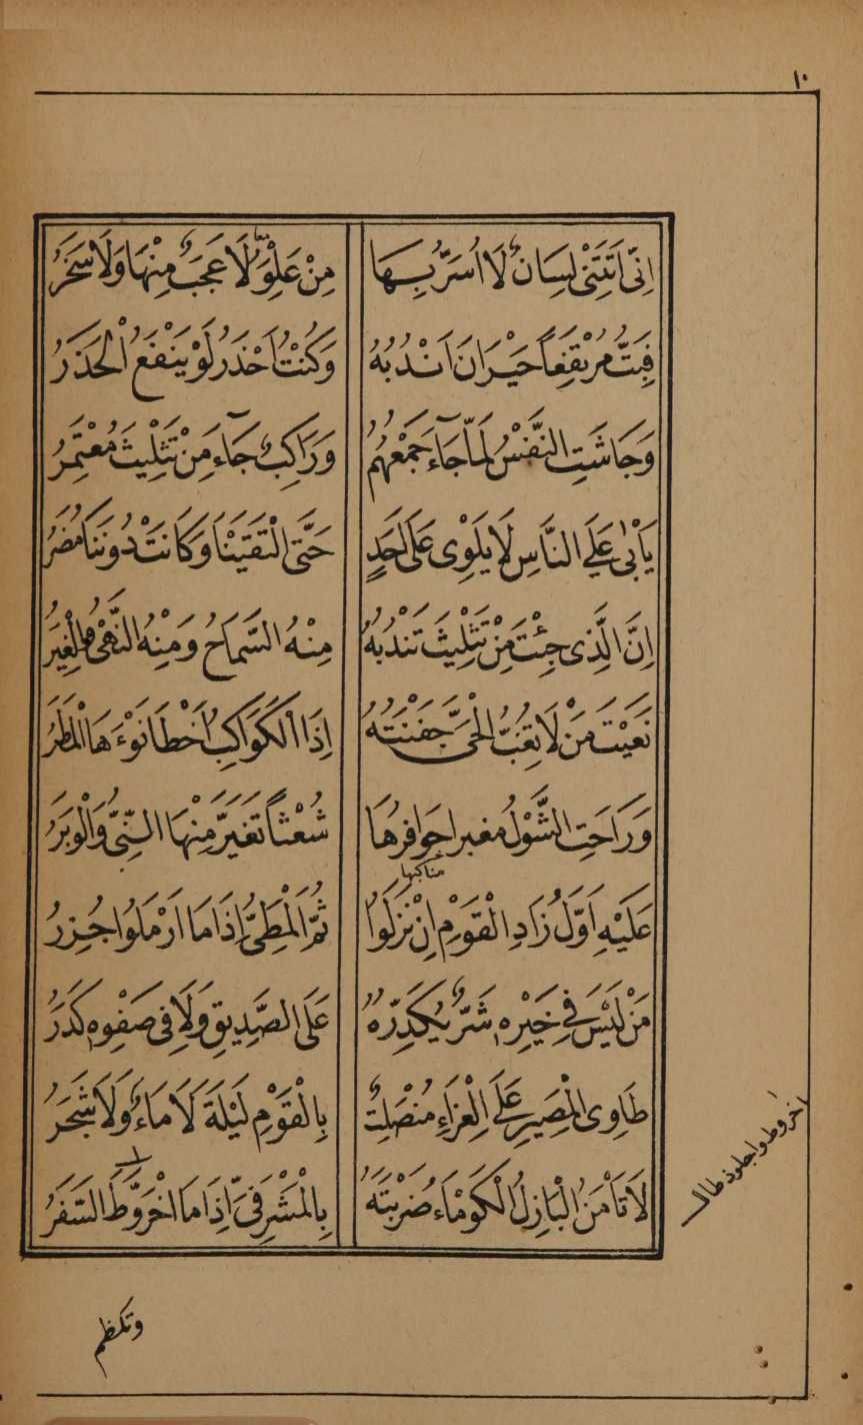 ١٠
اِنِّى اَتَتْنِى لِسَانٌ لَا اُسَرُّ بِهَا مِنْ عَلْوَ لَا عَجَبٌ مِنْهَا وَلَا سَخَرُ
فَبِتُّ مُرْتَفِقًا حَيْرَانَ اَنْدُبُهُ وَكُنْتُ اَحْذَرُ لَوْ يَنْفَعُ الْحَذَرُ
وَجَاشَتِ النَّفْسُ لَمَّا جَاءَ جَمْعُهُمُ وَرَاكِبٌ جَاءَ مِنْ تَثْلِيثَ مُعْتَمِرُ
يَأْبَى عَلَى النَّاسِ لَا يَلْوِى عَلَى اَحَدٍ حَتَّى الْتَقَيْنَا وَكَانَتْ دُونَنَا مُضَرُ
اِنَّ الَّذِى جِئْتَ مِنْ تَثْلِيثَ تَنْدُبُهُ مِنْهُ السَّمَاحُ وَمِنْهُ النَّهْىُ وَالْغِيَرُ
نَعَيْتَ مَنْ لَا تُغِبُّ الْحَىَّ جَفْنَتُهُ اِذَا الْكَوَاكِبُ اَخْطَا نَوْءَهَا الْمَطَرُ
وَرَاحَتِ الشَّوْلُ مغبرا جَوَافِرُهَا شُعْثًا تَغَيَّرَ مِنْهَا النِّىُّ وَالْوَبَرُ
مناكبها
عَلَيْهِ اَوَّلُ زَادِ الْقَوْمِ اِنْ نَزَلُوا ثُمَّ الْمَطِىُّ اِذَا مَا اَرْمَلُوا جُزِرُ
مَنْ لَيْسَ فِى خَيْرِهِ شَرٌّ يُكَدِّرُهُ عَلَى الصَّدِيقِ وَلَا فِى صَفْوِهِ كَدَرُ
طَاوِى الْمَصِيرِ عَلَى الْعَزَاءِ مُنْصَلِتٌ بِالْقَوْمِ لَيْلَةَ لَا مَاءٌ وَلَا شَجَرُ
لَا تَأْمَنُ الْبَازِلُ الْكَوْمَاءُ ضَرْبَتَهُ بِالْمَشْرَفِىِّ اِذَا مَا اخْرَوَّطَ السَّفَرُ
اخروط واجلوذ طال
وتكظم